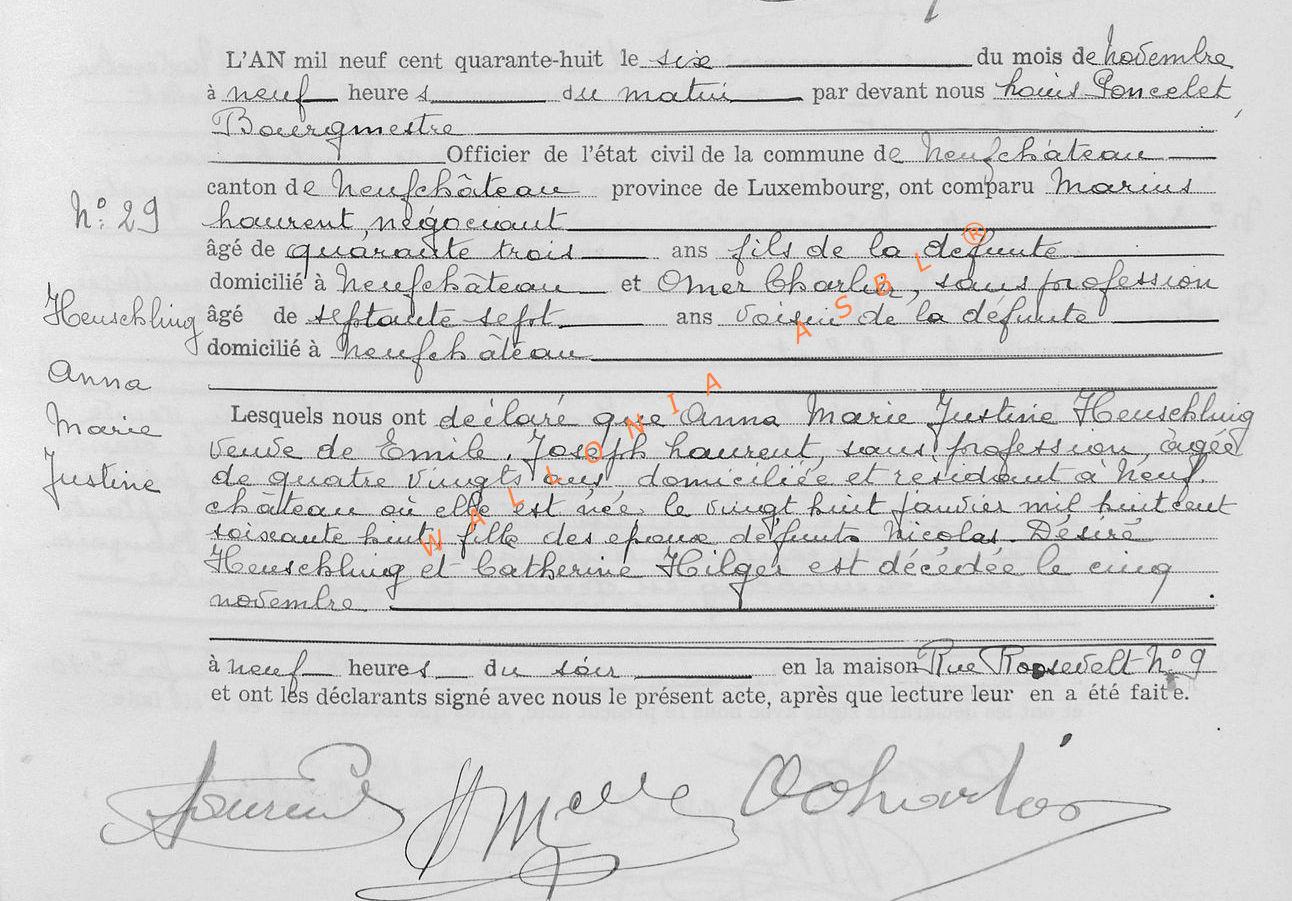 L'AN mil neuf cent quarante-huit le six du mois de novembre
à neuf heures du matin par devant nous Louis Poncelet,
Bourgmestre
Officier de l'état civil de la commune de Neufchâteau
canton de Neufchâteau province de Luxembourg, ont comparu Marius
N° 29
Laurent négociant
âgé de quarante trois ans fils de la défunte
domicilié à Neufchâteau et Omer Charlier, sans profession
Heuschling
âgé de septante sept ans voisin de la défunte
domicilié à Neufchâteau
Anna
Marie
Justine
Lesquels nous ont déclaré que Anna Marie Justine Heuschling
veuve de Emile Joseph Laurent, sans profession, âgée
de quatre vingts ans, domiciliée et résidant à Neuf
château où elle est née, le vingt huit janvier mil huit cent
soixante huit, fille des époux défunts Nicolas Désiré
Heuschling et Catherine Hilger est décédée le cinq
novembre
à neuf heures du soir en la maison Rue Roosevelt N° 9
et ont les déclarants signé avec nous le présent acte, après que lecture leur en a été faite.
Laurent
WALLONIA ASBL ®